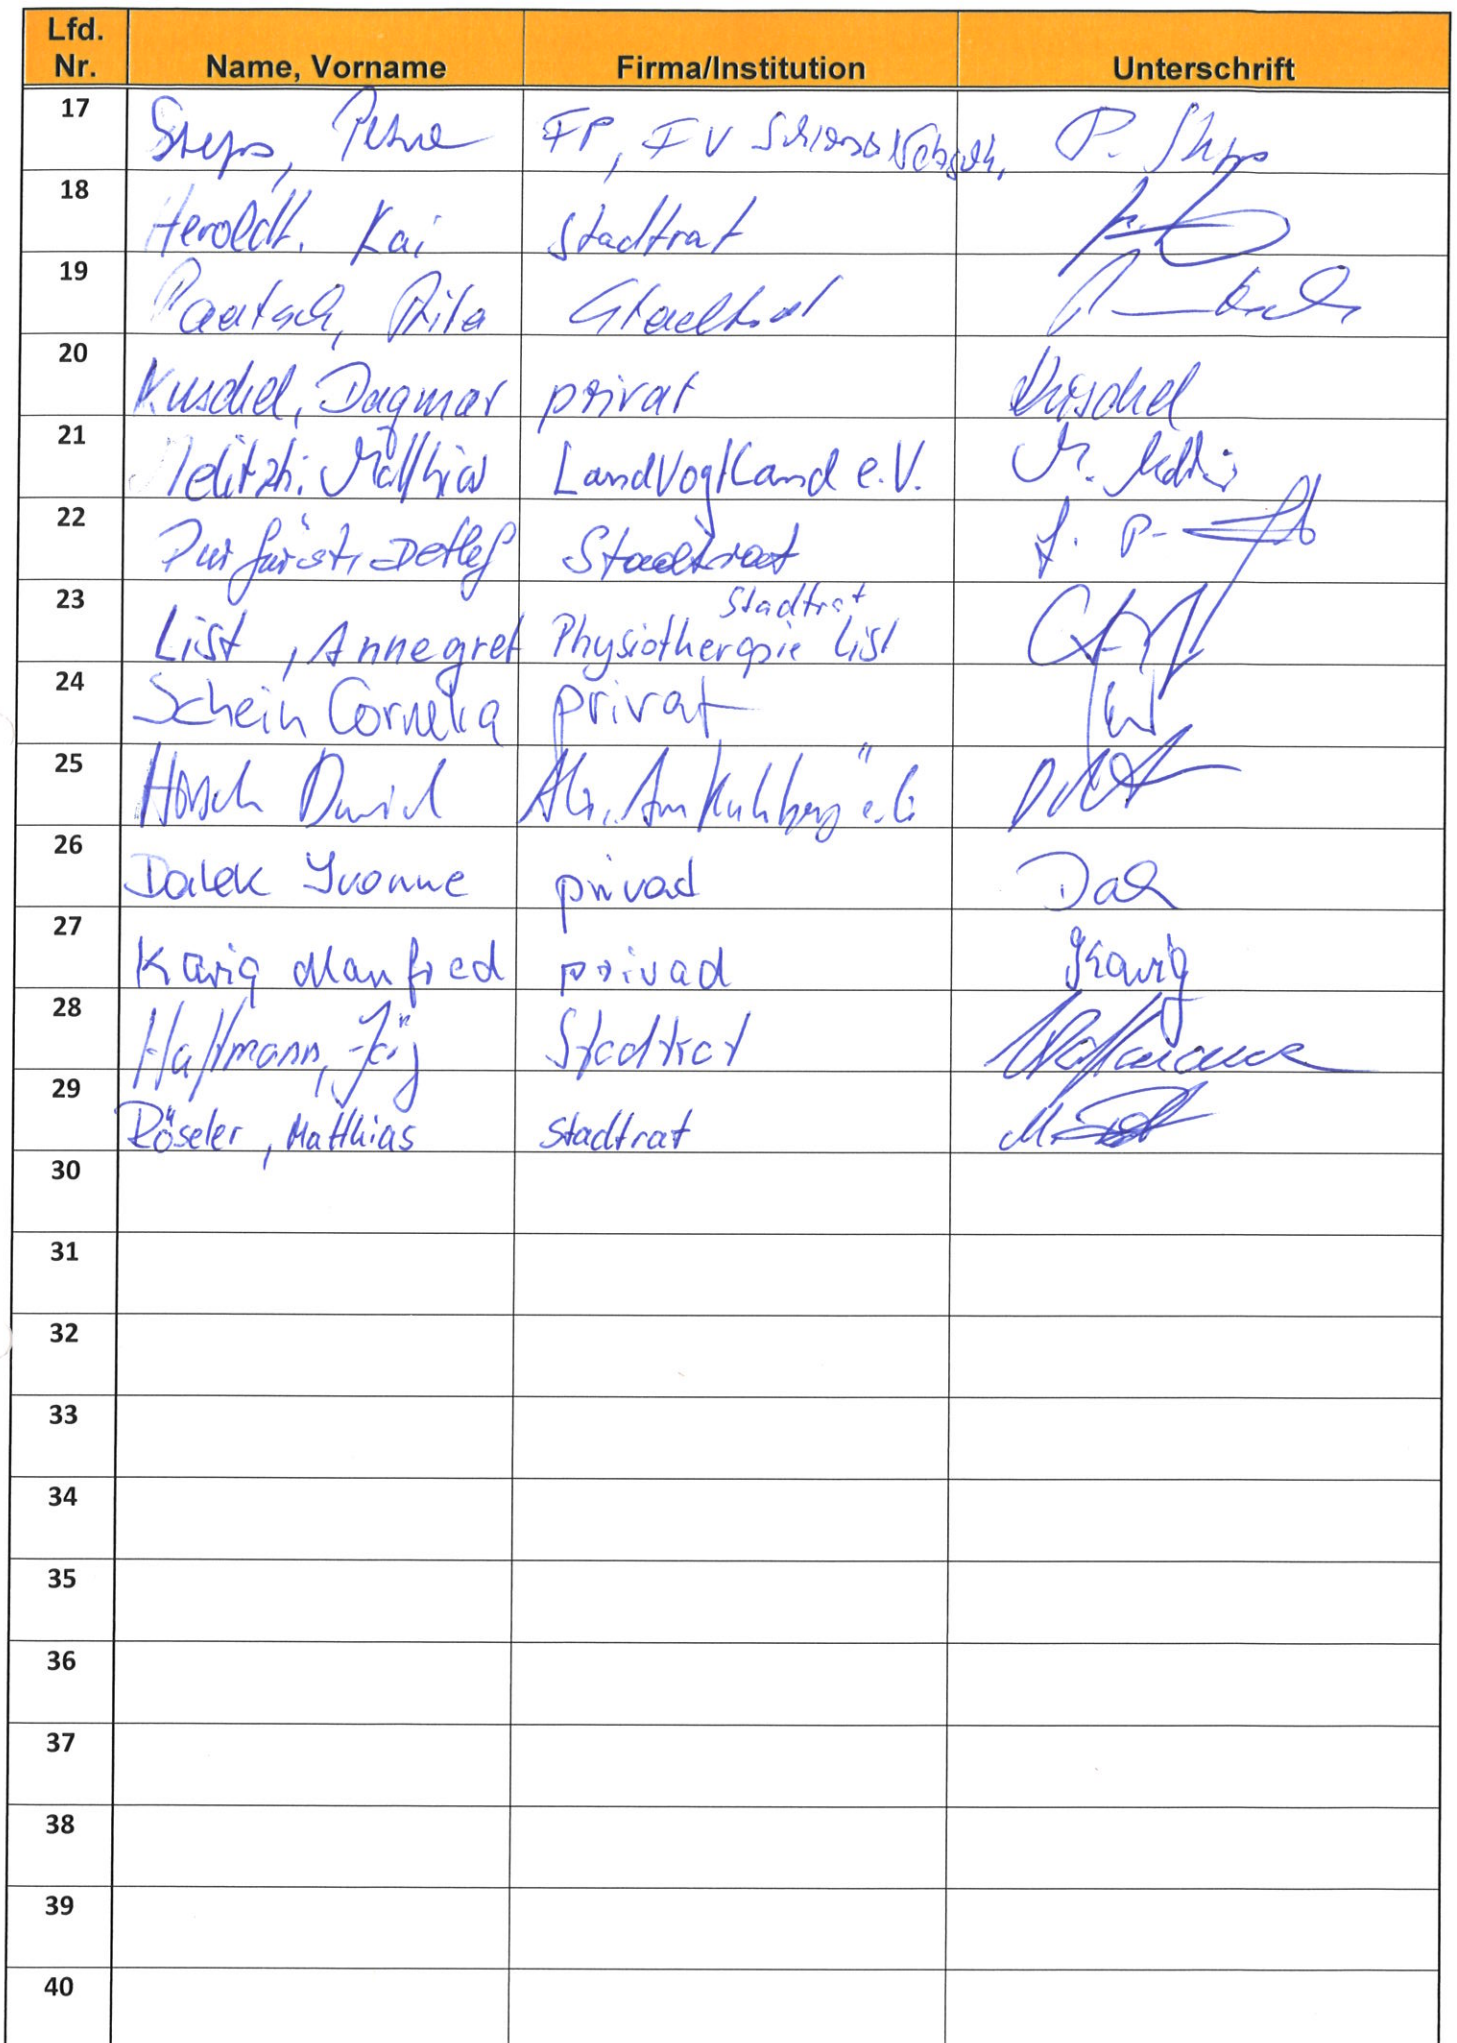 Lfd. Nr. Name, Vorname Firma/Institution Unterschrift
17 Steps, Petra FP, FV Schloss P. Steps
18 Heroldt, Kai Stadtrat
19 Paatsch, Rita Stadtrat
20 Kuschel, Dagmar privat Kuschel
21 Matthias LandVogtland e.V. M.
22 Purfürst, Detlef Stadtrat
23 List, Annegret Physiotherapie List Stadtrat
24 Schein Cornelia privat
25 Horsch David Am Kuhberg e.G.
26 Dalek Yvonne privad
27 Karig Manfred privad Karig
28 Haffmann, Jörg Stadtrat
29 Röseler, Matthias Stadtrat
30
31
32
33
34
35
36
37
38
39
40